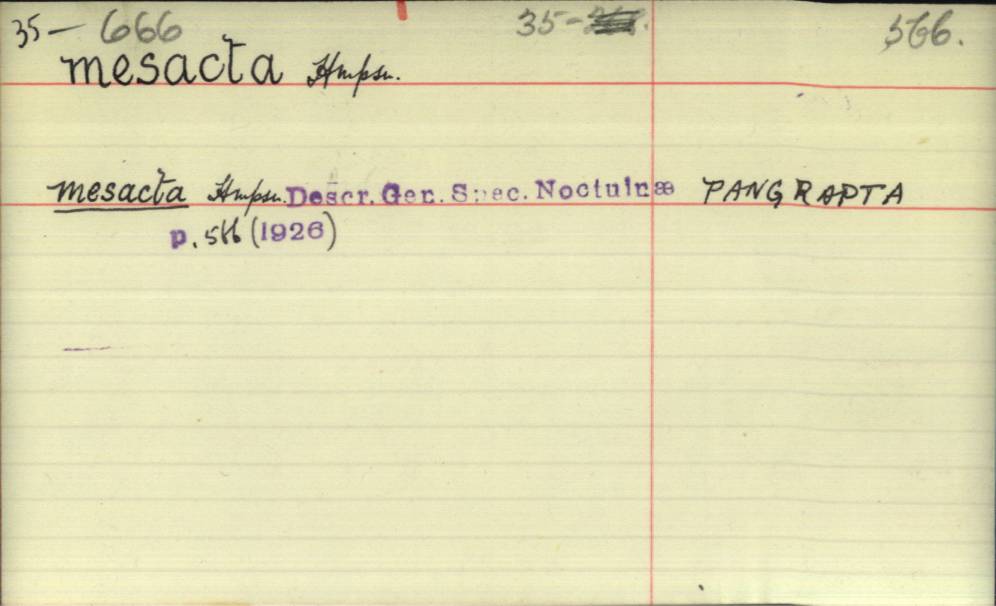 35 — 666 35 - 566.
mesacta Hmpsn.
mesacta Hmpsn. Descr. Gen. Spec. Noctuinæ PANGRAPTA
p. 566 (1926)